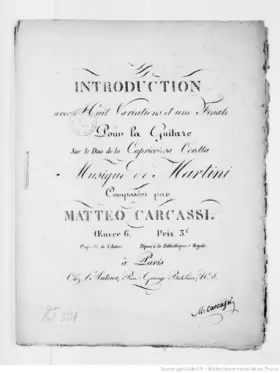 INTRODUCTION
avec Huit Variations et une Finale
Pour la Guitare
Sur le Duo de la Capricciosa Coretta
Musique de Martini
Composées par
MATTEO CARCASSI.
Œuvre 6. Prix 3.f
Propriété de l'Auteur. Déposé à la Bibliothèque Royale.
à Paris
Chez l'Auteur, Rue Grange Batelière, N.º
M. Carcassi
Source gallica.bnf.fr / Bibliothèque nationale de France